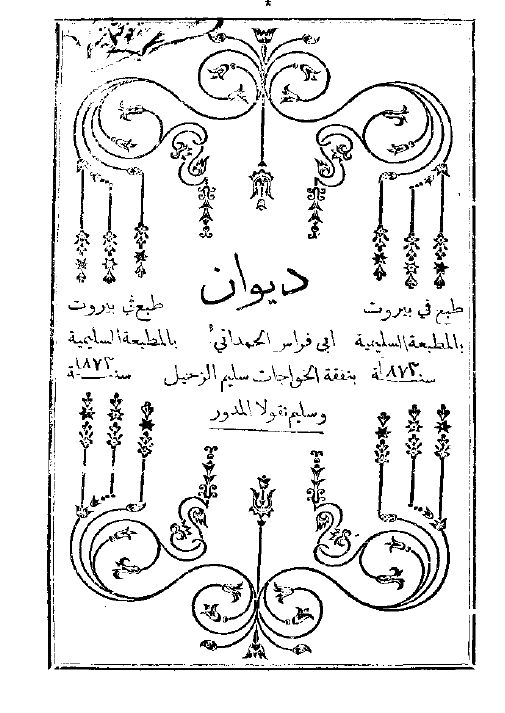 ديوان
طبع في بيروت
بالمطبعة السليمية
سنة ١٨٧٣
ابي فراس الحمداني
بنفقة الخواجات سليم الزحيل
وسليم نقولا المدور
طبع في بيروت
بالمطبعة السليمية
سنة ١٨٧٣